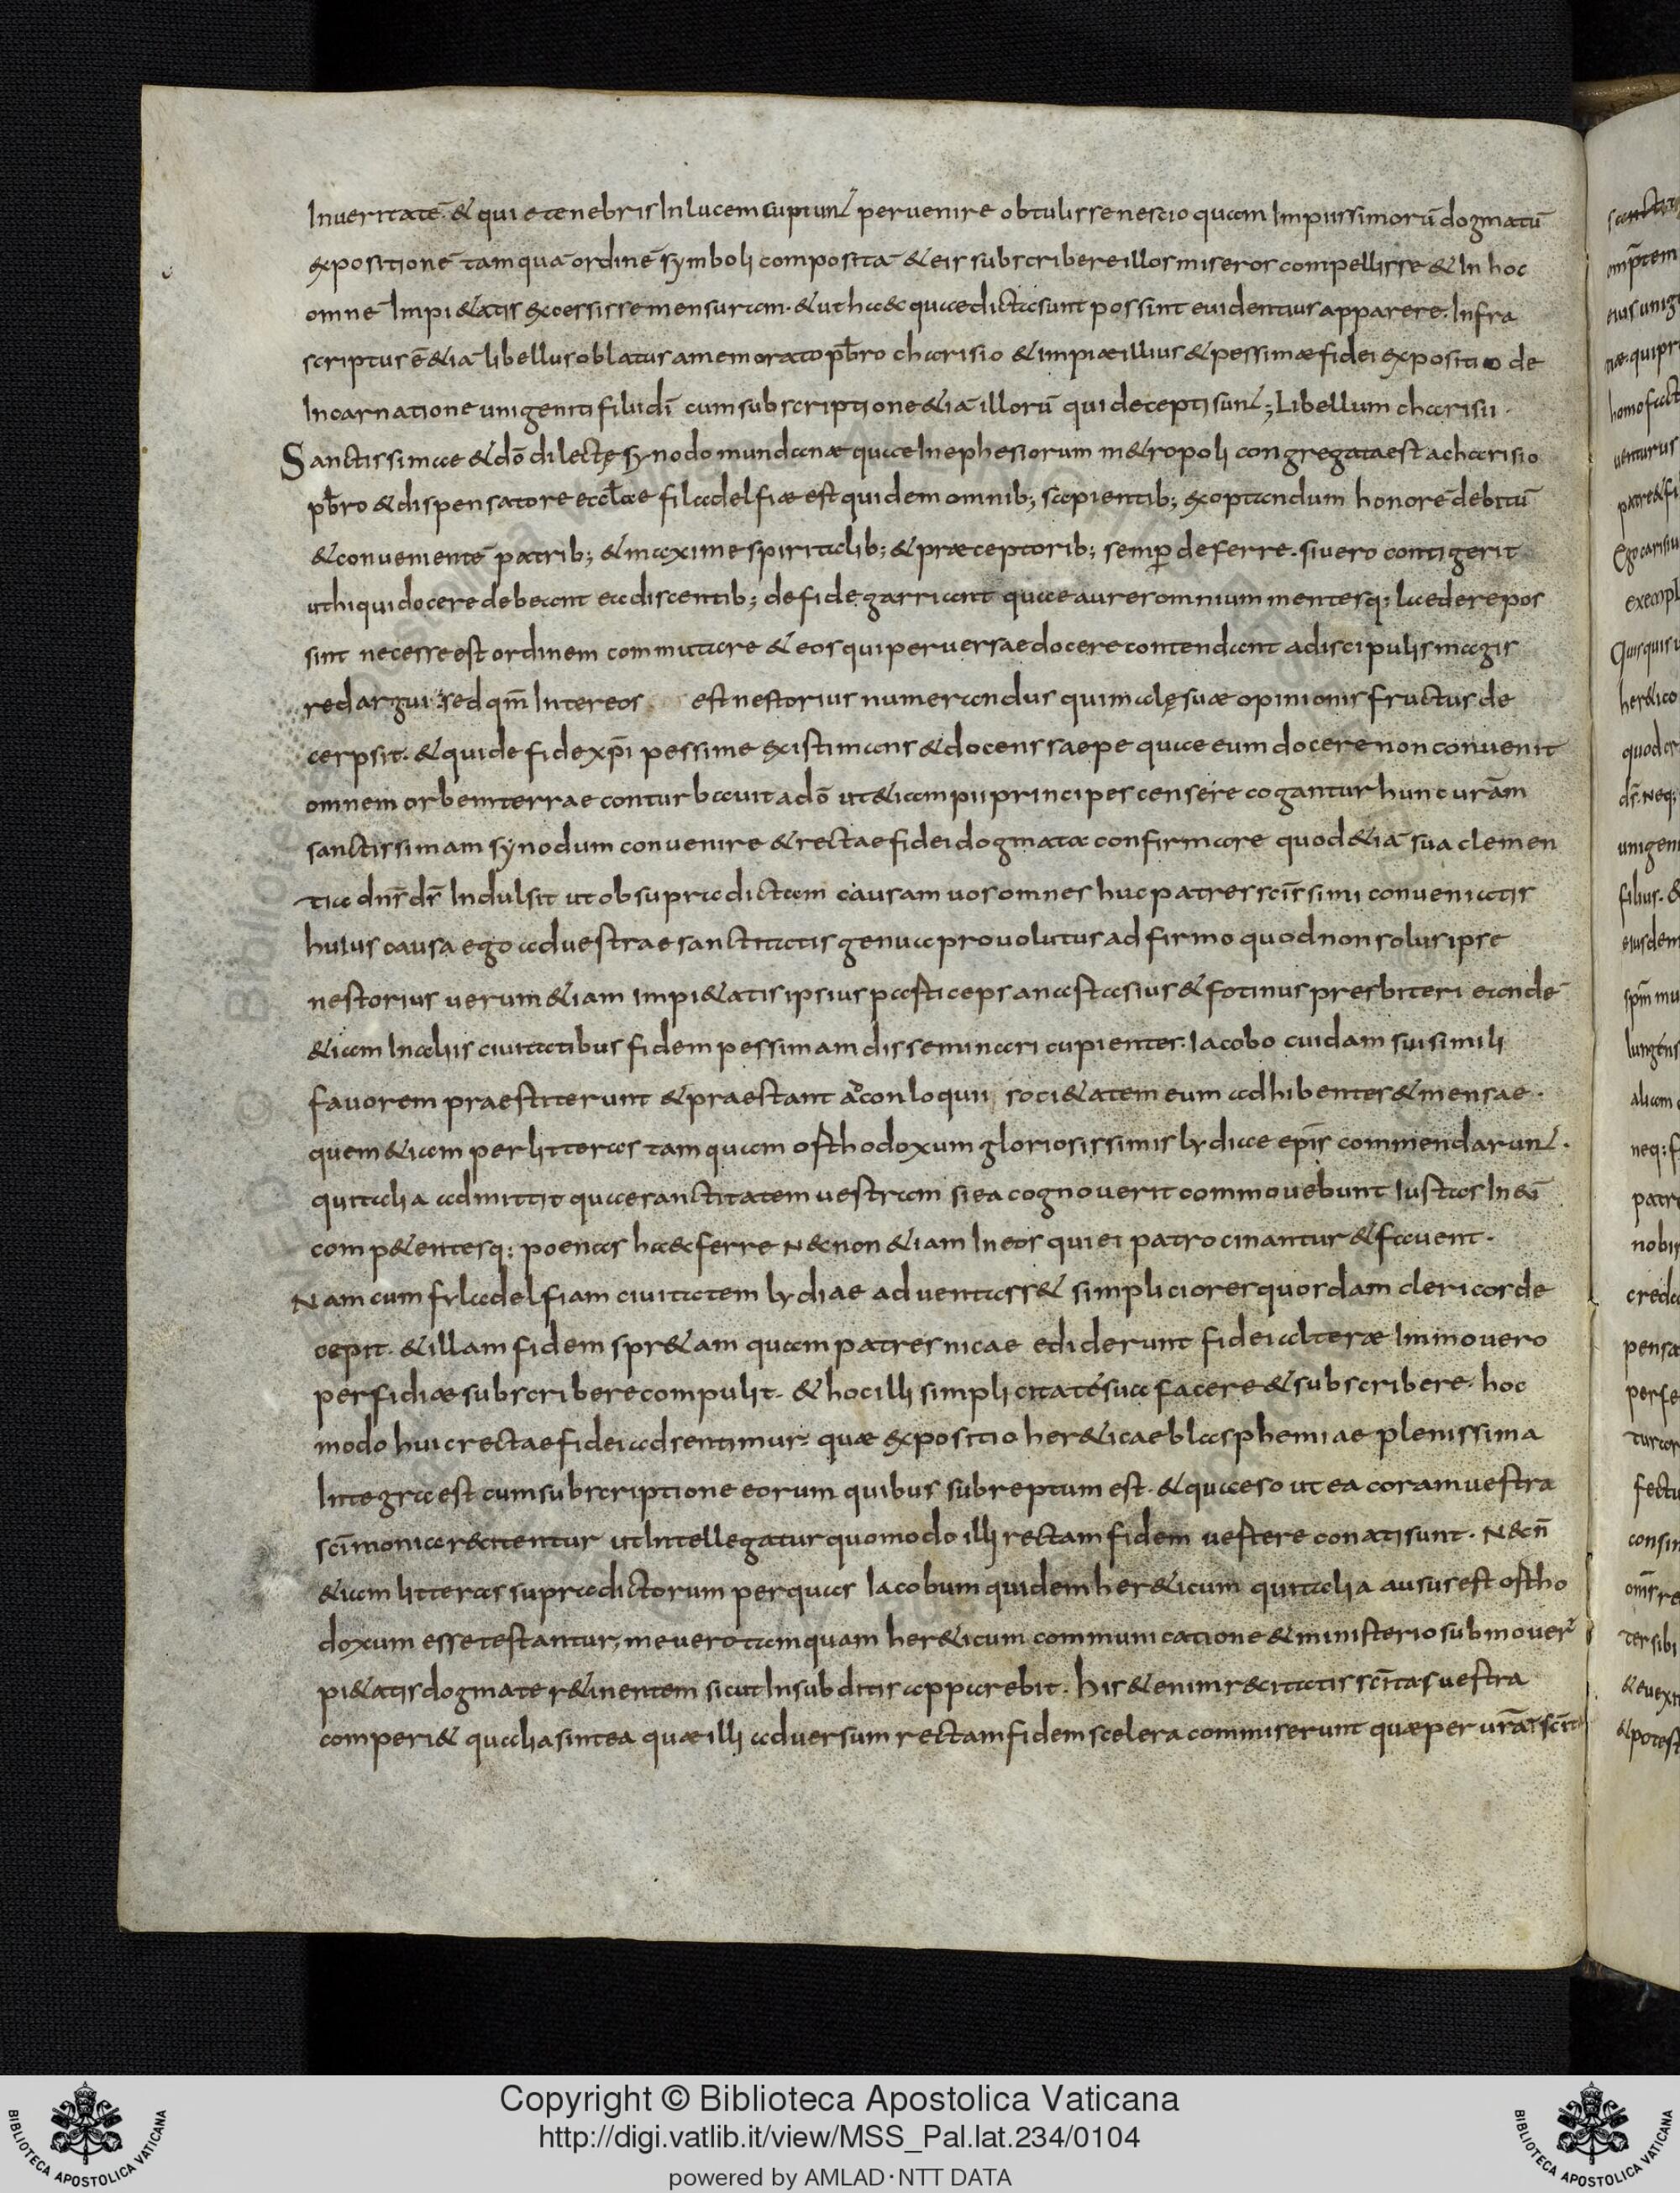 Inueritatē. & qui e tenebris In lucem cupiunt peruenire obtulisse nescio quam Impiissimorū dogmatū
expositionē tamquā ordinē symboli compositā & eis subscribere illos miseros compellisse & In hoc
omnē Impi&atis excessisse mensuram. & ut haec quae dicta sunt possint euidentius apparere. Infra
scriptus ē &iā libellus oblatus a memorato pƀro charisio & impiae illius & pessimae fidei expositio de
Incarnatione unigeniti filii dī cum subscriptione &iā illorū qui decepti sunt; Libellum charisii.
Sanctissimae & dō dilectę synodo mundanae quae In ephesiorum m&ropoli congregata est a charisio
pƀro & dispensatore eccl̄ae filadelfiae est quidem omnib; sapientib; exoptandum honorē debitū
& conuenientē patrib; & maxime spiritalib; & praeceptorib; semꝑ deferre. si uero contigerit
ut hi qui docere debeant ea discentib; de fide garriant quae aures omnium mentesq; laedere pos
sint necesse est ordinem commutare & eos qui peruersae docere contendant a discipulis magis
redargui. sed qm̄ Inter eos est nestorius numerandus qui malę suae opinionis fructus de
cerpsit. & qui de fide xp̄i pessime existimans & docens saepe quae eum docere non conuenit
omnem orbem terrae conturbauit adō ut &iam pii principes censere cogantur hunc urām
sanctissimam synodum conuenire & rectae fidei dogmata confirmare quod &iā sua clemen
tia dn̄s ds̄ Indulsit ut ob supradictam causam uos omnes huc patres scīssimi conueniatis
huius causa ego ad uestrae sanctitatis genua prouolutus adfirmo quod non solus ipse
nestorius uerum &iam impi&atis ipsius particeps anastasius & fotinus presbiteri eandē
&iam In aliis ciuitatibus fidem pessimam disseminari cupientes. Iacobo cuidam sui simili
fauorem praestiterunt & praestant ac conloquii soci&atem eum adhibentes & mensae.
quem &iam per litteras tamquam orthodoxum gloriosissimis lydiae epīs commendarunt.
qui talia admittit quae sanctitatem uestram si ea cognouerit commouebunt Iustas In eū
comp&entesq: poenas haec ferre Nec non &iam In eos qui ei patrocinantur & fauent.
Nam cum fyladelfiam ciuitatem lydiae aduentass& simpliciores quosdam clericos de
cepit. & illam fidem spr&am quam patres nicae ediderunt fidei alterae Immo uero
perfidiae subscribere compulit. & hoc illi simplicitatē sua facere & subscribere. hoc
modo huic rectae fidei adsentimur. quae expositio her&icae blasphemiae plenissima
Integra est cum subscriptione eorum quibus subreptum est. & quaeso ut ea coram uestra
scīmonia recitentur ut Intellegatur quomodo illi rectam fidem uertere conati sunt. Necn̄
&iam litteras supradictorum per quas Iacobum quidem her&icum qui talia ausus est ortho
doxum esse testantur, me uero tamquam her&icum communicatione & ministerio submouer̄
pi&atis dogmate r&inentem sicut In subditis apparebit. his &enim recitatis scītas uestra
comperi& qualia sint ea quae illi aduersum rectam fidem scelera commiserunt quae per urām scīt
Copyright © Biblioteca Apostolica Vaticana
http://digi.vatlib.it/view/MSS_Pal.lat.234/0104
powered by AMLAD·NTT DATA
BIBLIOTECA APOSTOLICA VATICANA
BIBLIOTECA APOSTOLICA VATICANA